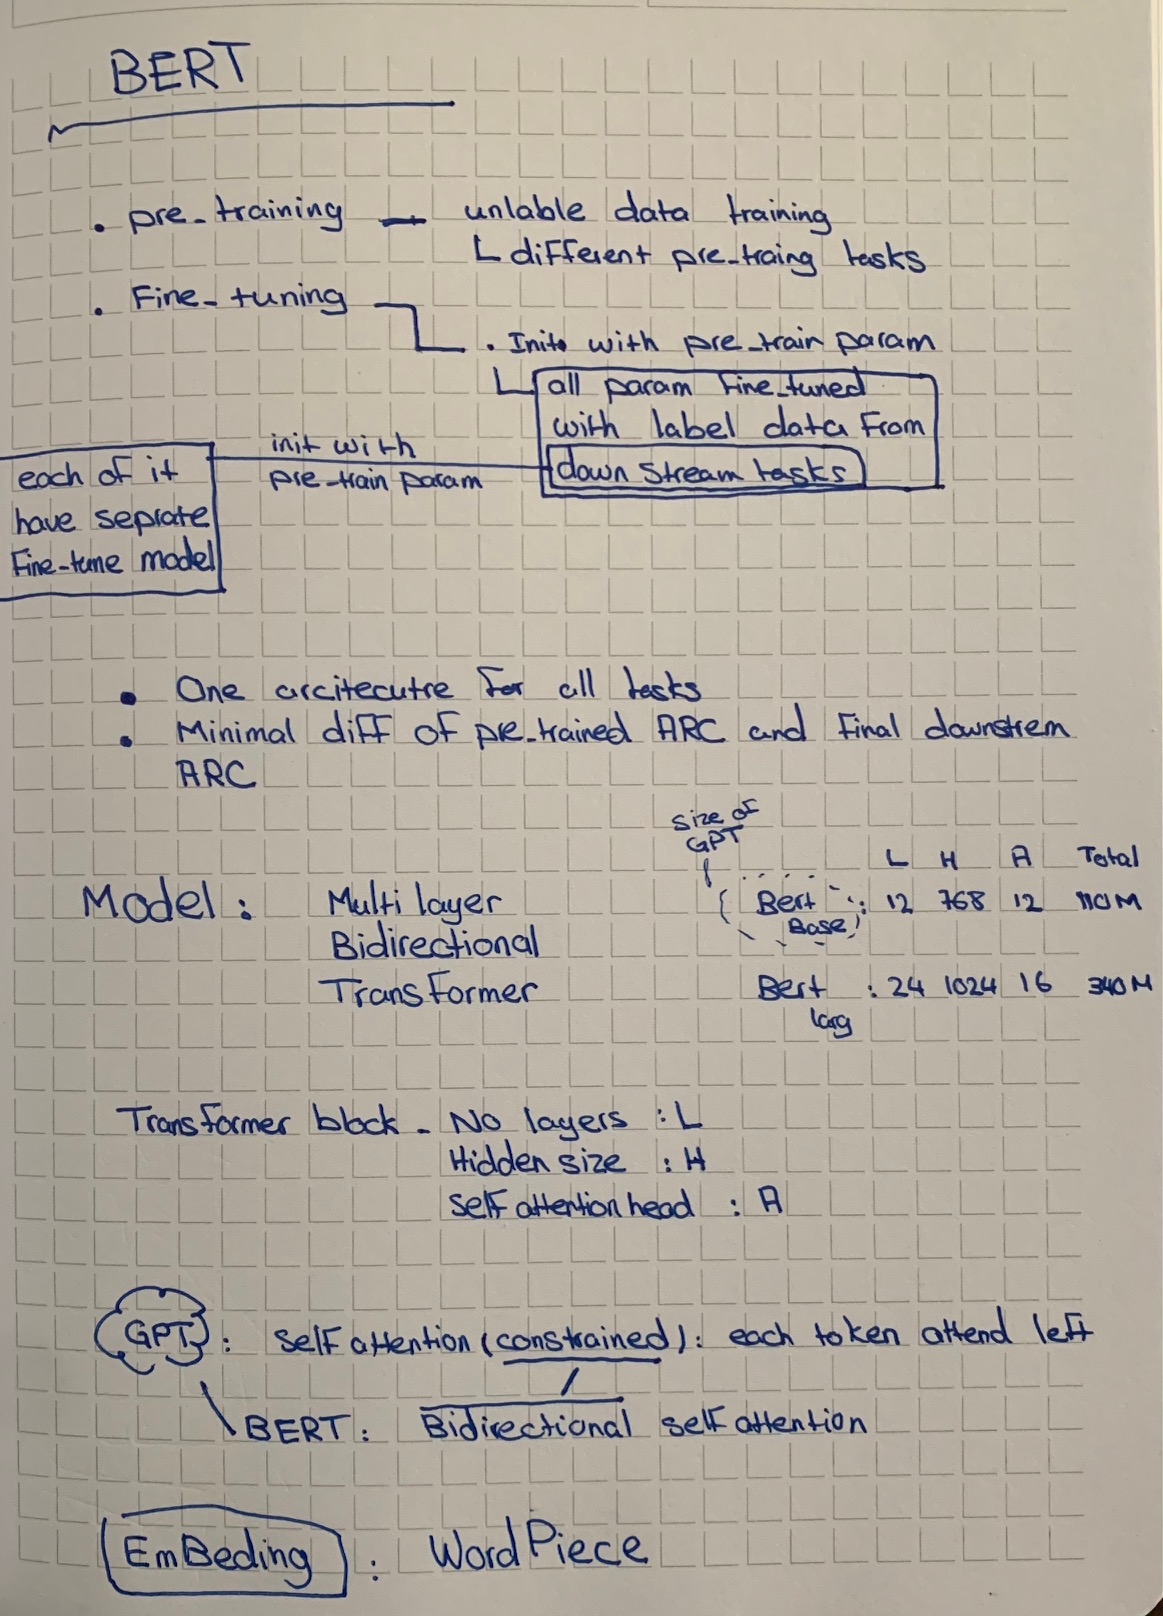 BERT
. pre-training — unlable data training
different pre-traing tasks
. Fine-tuning
. Init with pre-train param
all param fine-tuned
with label data from
down stream tasks
init with
pre-train param
each of it
have seprate
Fine-tune model
• One arcitecutre for all tasks
• Minimal diff of pre-trained ARC and final downstrem
ARC
size of
GPT
L H A Total
Model : Multi layer
Bidirectional
Transformer
Bert : 12 768 12 110M
Base
Bert : 24 1024 16 340M
larg
Transformer block - No layers : L
Hidden size : H
self attention head : A
GPT : self attention (constrained) : each token attend left
BERT : Bidirectional self attention
EmBeding : WordPiece